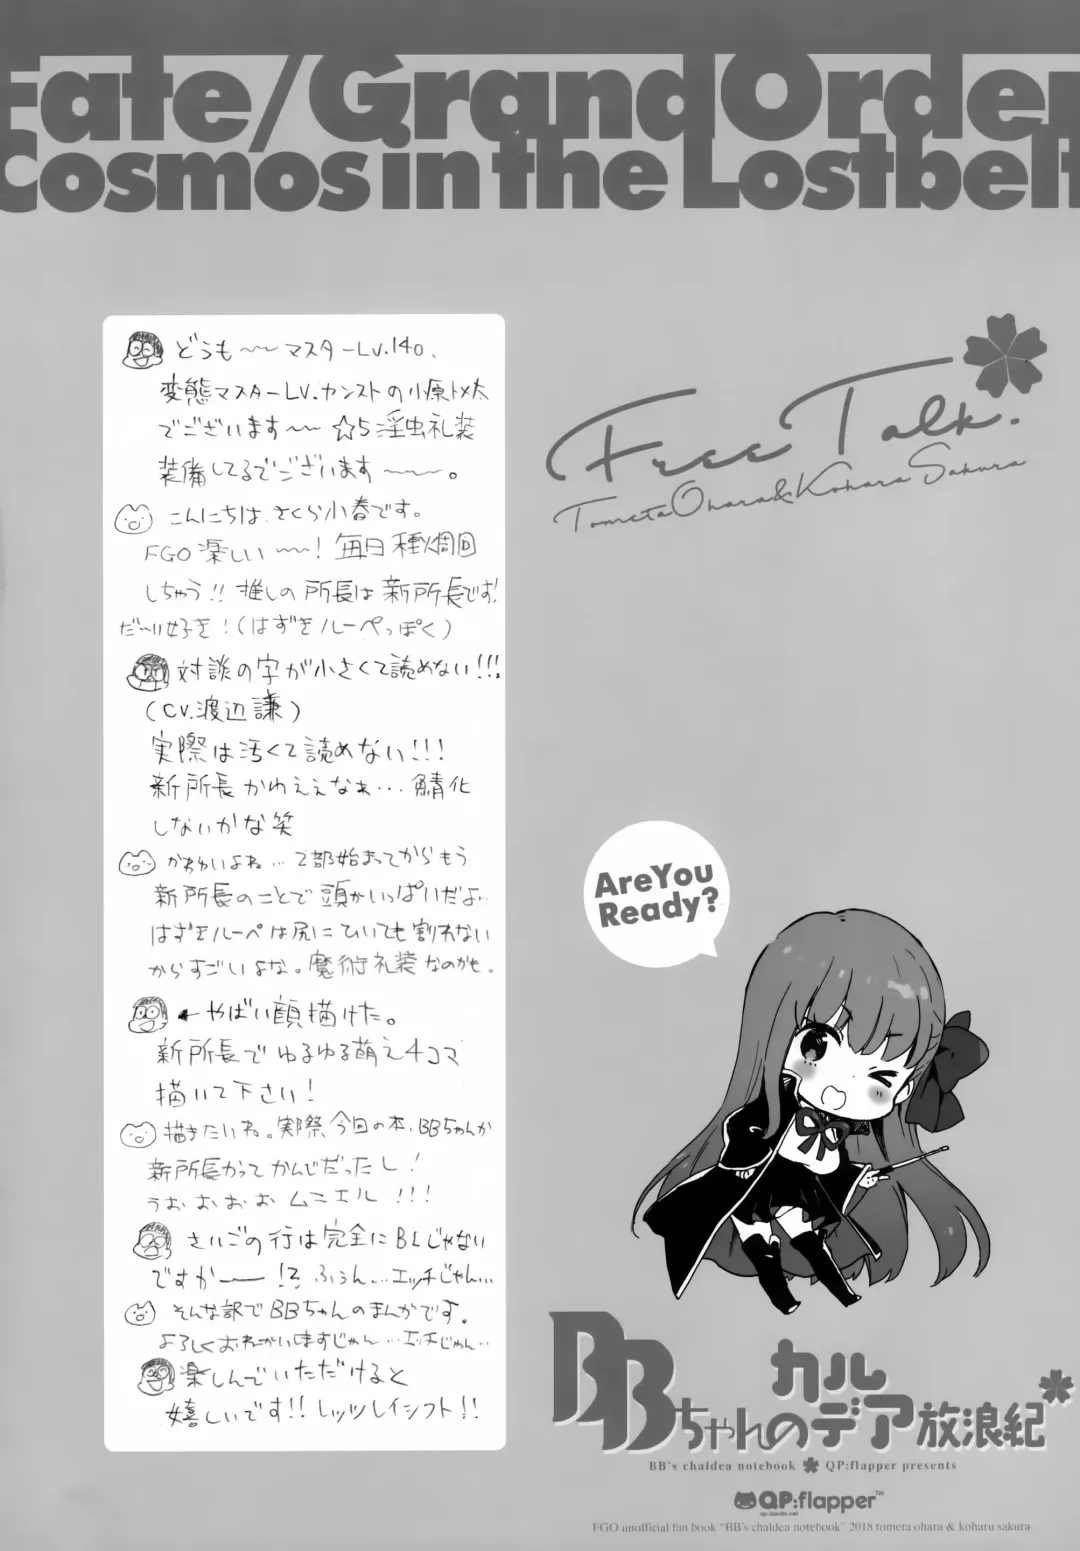 Fate/Grand Order
Cosmos in the Lostbelt
どうも〜〜マスターLv.140、
変態マスターLV.カンストの小原トメ太
でございます〜〜 ☆5淫虫礼装
装備してるでございます〜〜〜。
こんにちは、さくら小春です。
FGO楽しい〜〜！毎日種火周回
しちゃう!! 推しの所長は新所長です!
だ〜い好き！(はずきルーペっぽく)
対談の字が小さくて読めない!!!
(CV.渡辺謙)
実際は汚くて読めない!!!
新所長かわええなぁ…鯖化
しないかな笑
かわいいよね…2部始まってからもう
新所長のことで頭がいっぱいだよ…
はずきルーペは尻にひいても割れない
からすごいよな。魔術礼装なのかも。
←やばい顔描けた。
新所長でゆるゆる萌え4コマ
描いて下さい！
描きたいね。実際今回の本、BBちゃんか
新所長かってかんじだったし！
うおおおお ムニエル!!!
さいごの行は完全にBLじゃない
ですかー!? ふぅん…エッチじゃん…
そんな訳でBBちゃんのまんがです。
よろしくおねがいしますじゃん…エッチじゃん…
楽しんでいただけると
嬉しいです!! レッツレイシフト!!
Free Talk.
Tometa Ohara & Koharu Sakura
Are You
Ready?
BBちゃんのカルデア放浪紀
BB's chaldea notebook QP:flapper presents
QP:flapper™
FGO unofficial fan book "BB's chaldea notebook" 2018 tometa ohara & koharu sakura